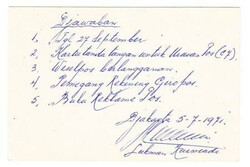 Djawaban
1. Tgl 27 September
2. Kartu tanda tangan untuk Urusan Pos (C7).
3. Weselpos berlangganan.
4. Pemegang Rekening Giropos
5. Buku Reklame Pos.
Djakarta 5-7-1971.
Lukman